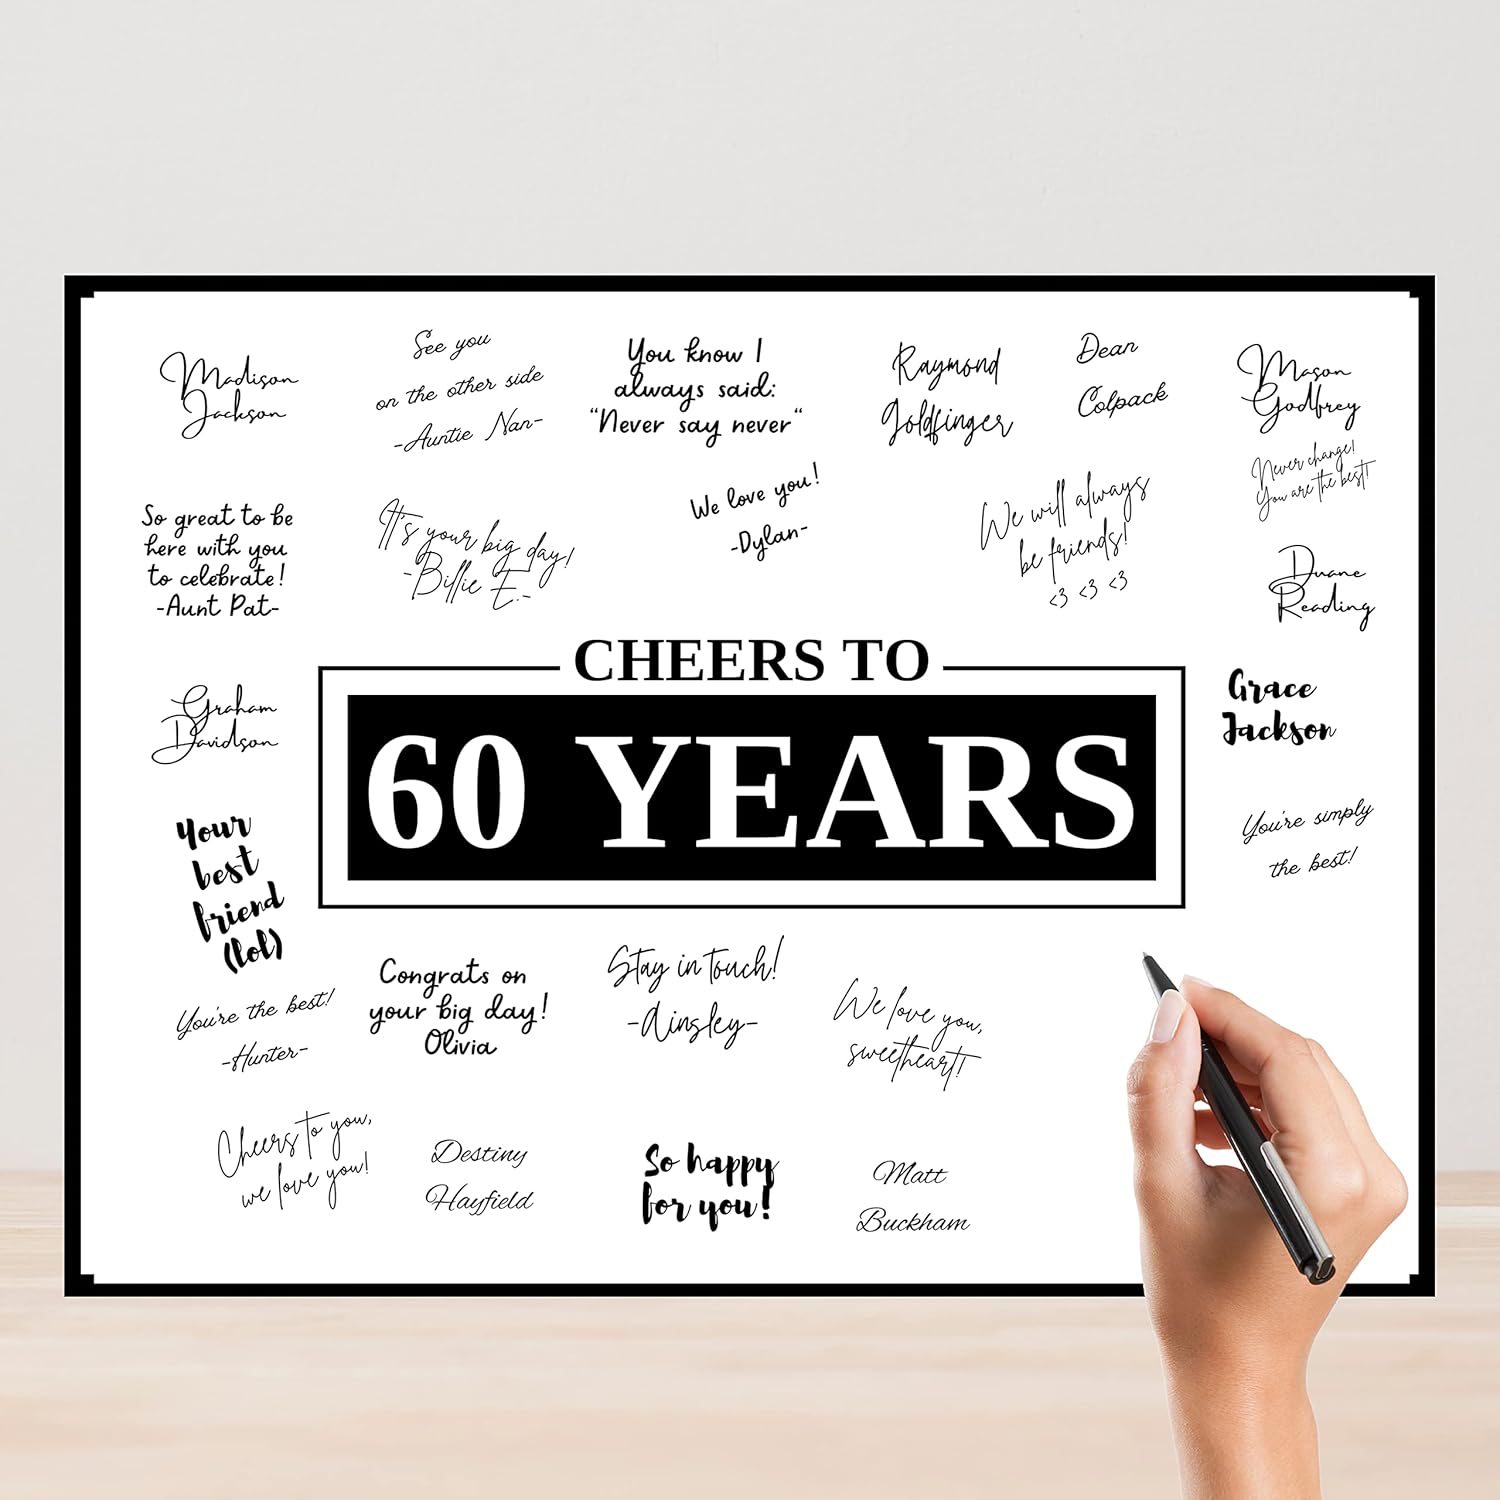 Madison
Jackson
See you
on the other side
-Auntie Nan-
You know I
always said:
“Never say never“
Raymond
Goldfinger
Dean
Colpack
Mason
Godfrey
Never change!
You are the best!
So great to be
here with you
to celebrate!
-Aunt Pat-
It's your big day!
-Billie E.-
We love you!
-Dylan-
We will always
be friends!
<3 <3 <3
Duane
Reading
CHEERS TO
60 YEARS
Graham
Davidson
Grace
Jackson
Your
best
friend
(lol)
You're simply
the best!
You're the best!
-Hunter-
Congrats on
your big day!
Olivia
Stay in touch!
-Ainsley-
We love you,
sweetheart!
Cheers to you,
we love you!
Destiny
Hayfield
So happy
for you!
Matt
Buckham